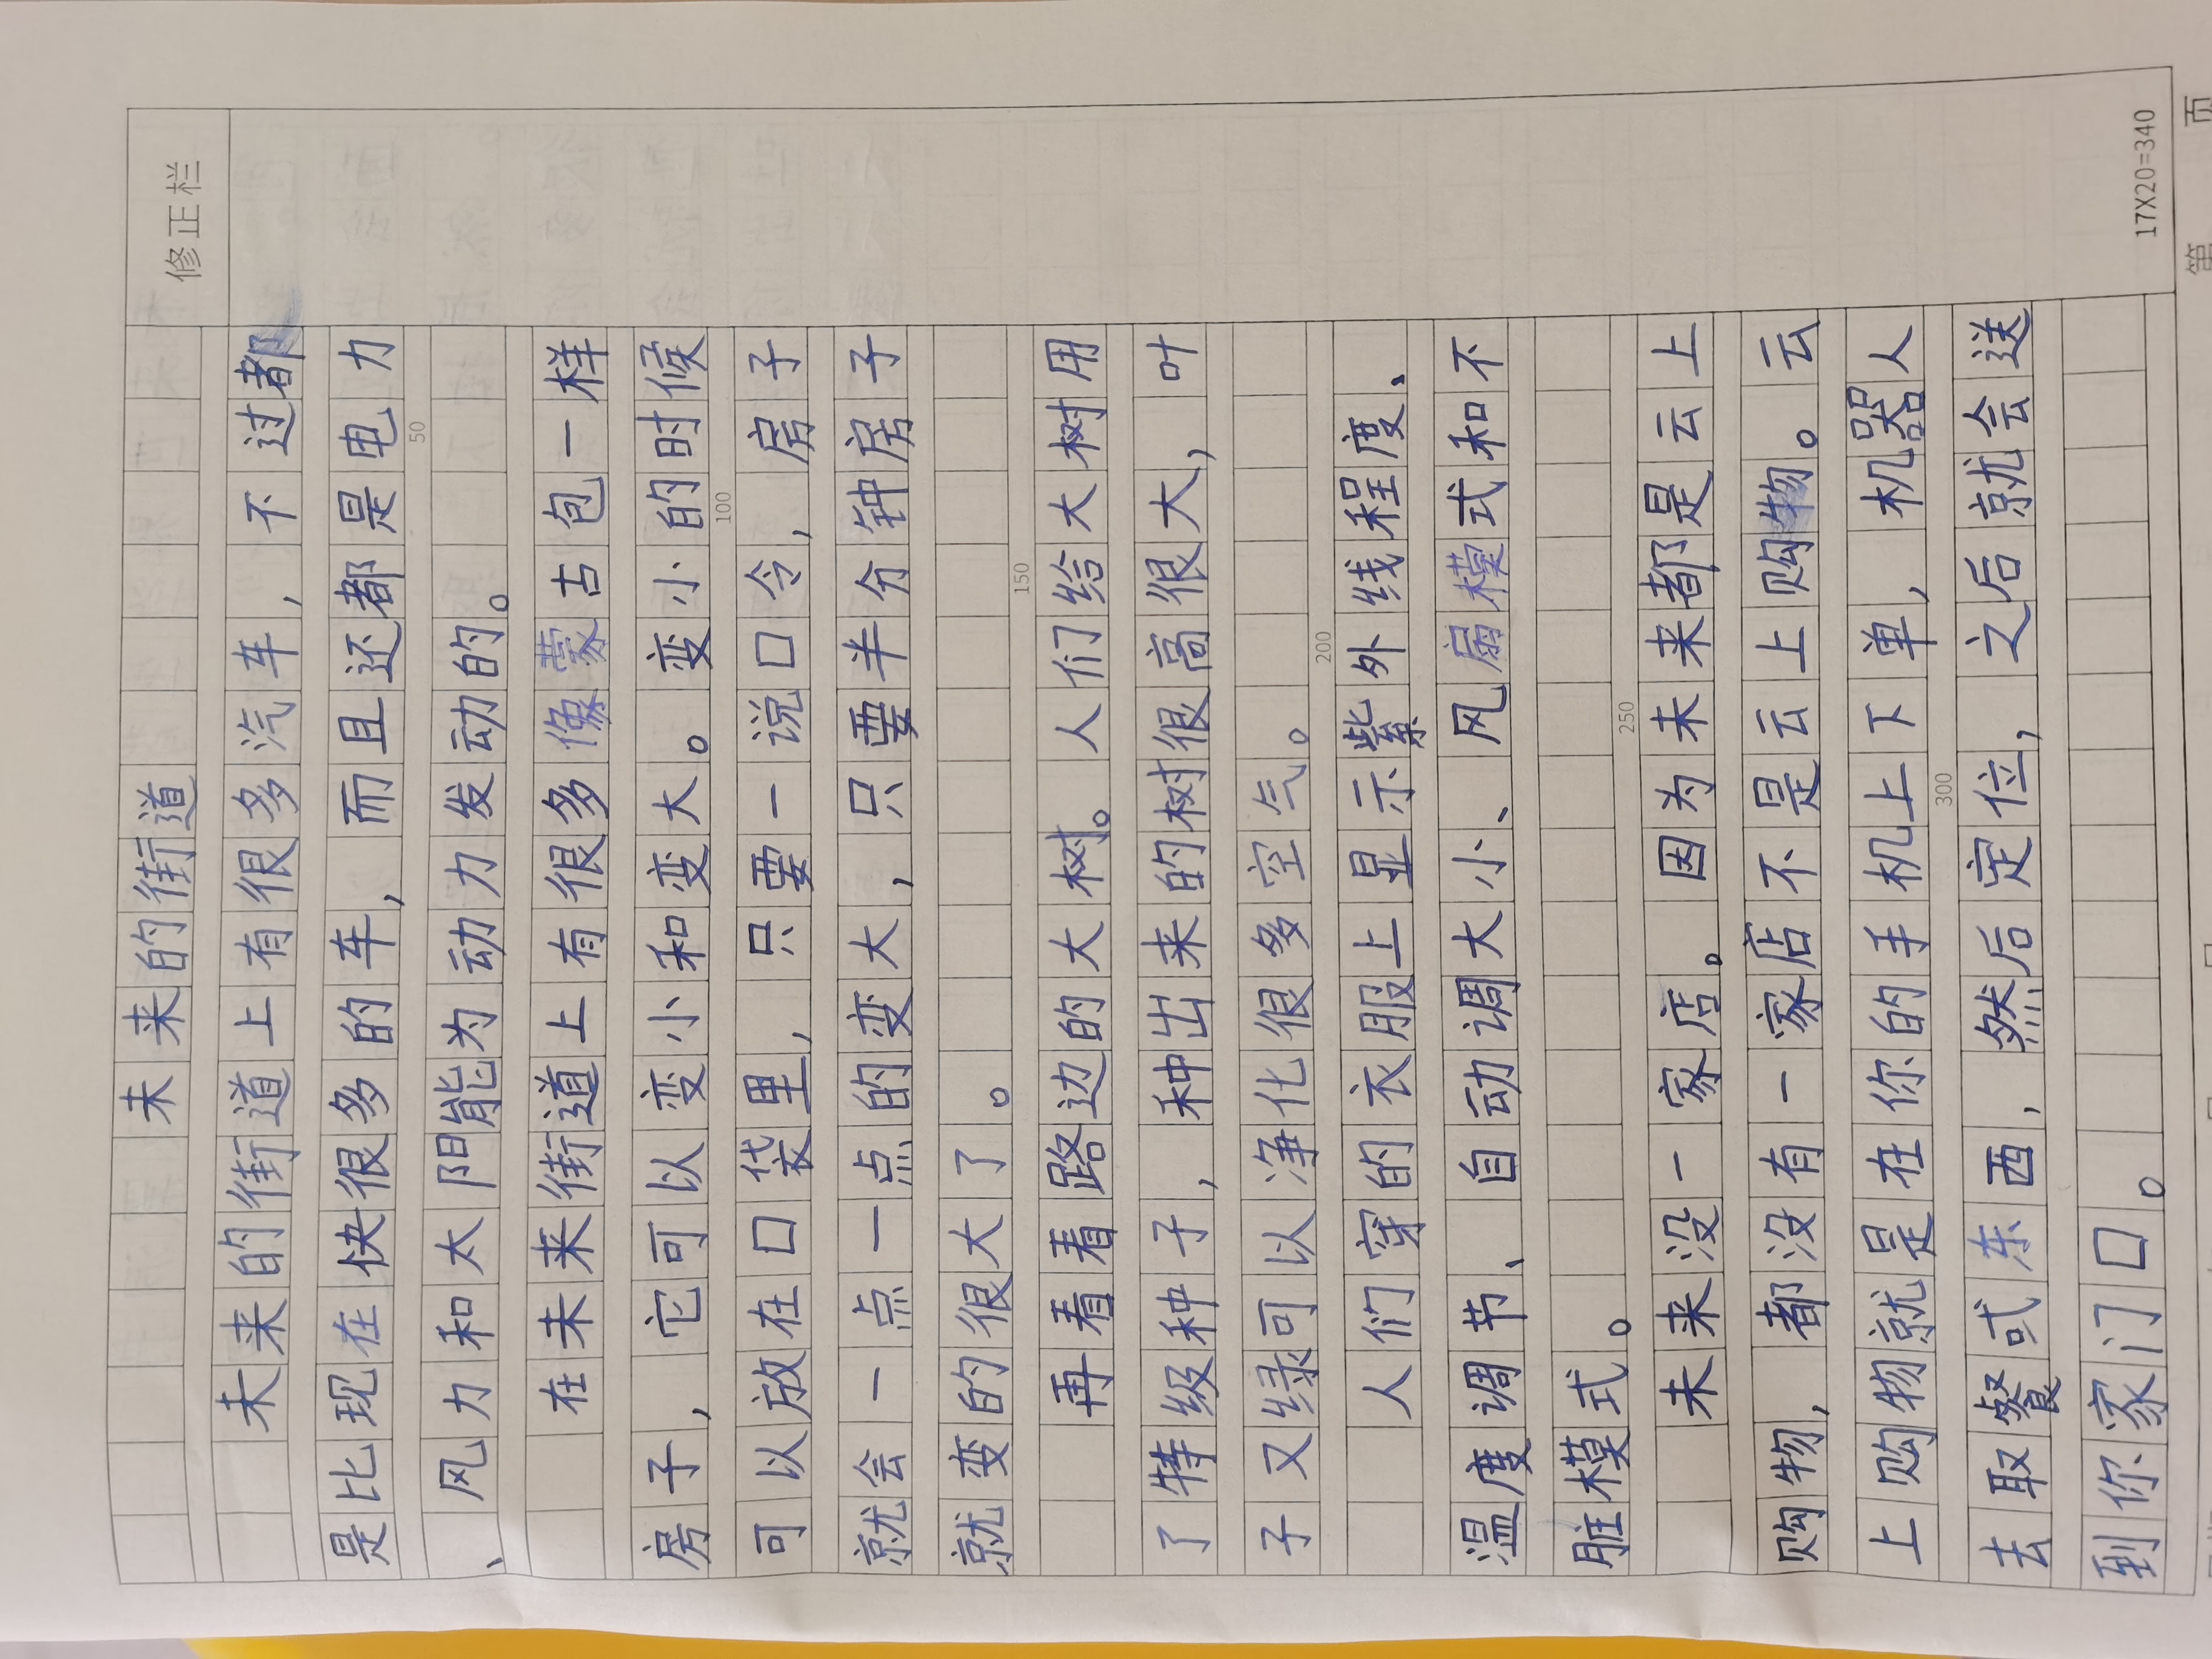 修正栏
未来的街道
未来的街道上有很多汽车，不过都
是比现在快很多的车，而且还都是电力
50
、风力和太阳能为动力发动的。
在未来街道上有很多像蒙古包一样
房子，它可以变小和变大。变小的时候
100
可以放在口袋里，只要一说口令，房子
就会一点一点的变大，只要半分钟房子
就变的很大了。
150
再看看路边的大树。人们给大树用
了特级种子，种出来的树很高很大，叶
子又绿可以净化很多空气。
200
人们穿的衣服上显示紫外线程度、
温度调节、自动调大小、风扇模式和不
脏模式。
250
未来没一家店。因为未来都是云上
购物，都没有一家店不是云上购物。云
上购物就是在你的手机上下单，机器人
300
去取餐或东西，然后定位，之后就会送
到你家门口。
17X20=340
第 页